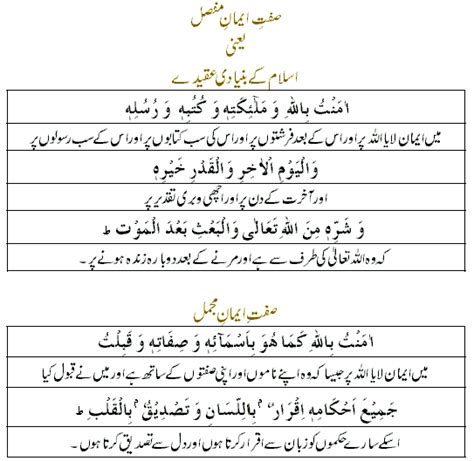 صفتِ ایمانِ مفصل
یعنی
اسلام کے بنیادی عقیدے
اٰمَنْتُ بِاللّٰهِ وَ مَلٰٓئِكَتِهٖ وَ كُتُبِهٖ وَ رُسُلِهٖ
میں ایمان لایا اللہ پر اور اس کے بعد فرشتوں پر اور اس کی سب کتابوں پر اور اس کے سب رسولوں پر
وَالْیَوْمِ الْاٰخِرِ وَالْقَدْرِ خَیْرِهٖ
اور آخرت کے دن پر اور اچھی و بری تقدیر پر
وَ شَرِّهٖ مِنَ اللّٰهِ تَعَالٰی وَالْبَعْثِ بَعْدَ الْمَوْت ط
کہ وہ اللہ تعالیٰ کی طرف سے ہے اور مرنے کے بعد دوبارہ زندہ ہونے پر ۔
صفتِ ایمانِ مجمل
اٰمَنْتُ بِاللّٰهِ كَمَا هُوَ بِاَسْمَآئِهٖ وَ صِفَاتِهٖ وَ قَبِلْتُ
میں ایمان لایا اللہ پر جیسا کہ وہ اپنے ناموں اور اپنی صفتوں کے ساتھ ہے اور میں نے قبول کیا
جَمِیْعَ اَحْكَامِهٖ اِقْرَارٌ بِاللِّسَانِ وَ تَصْدِیْقٌ بِالْقَلْبِ ط
اسکے سارے حکموں کو زبان سے اقرار کرتا ہوں اور دل سے تصدیق کرتا ہوں ۔